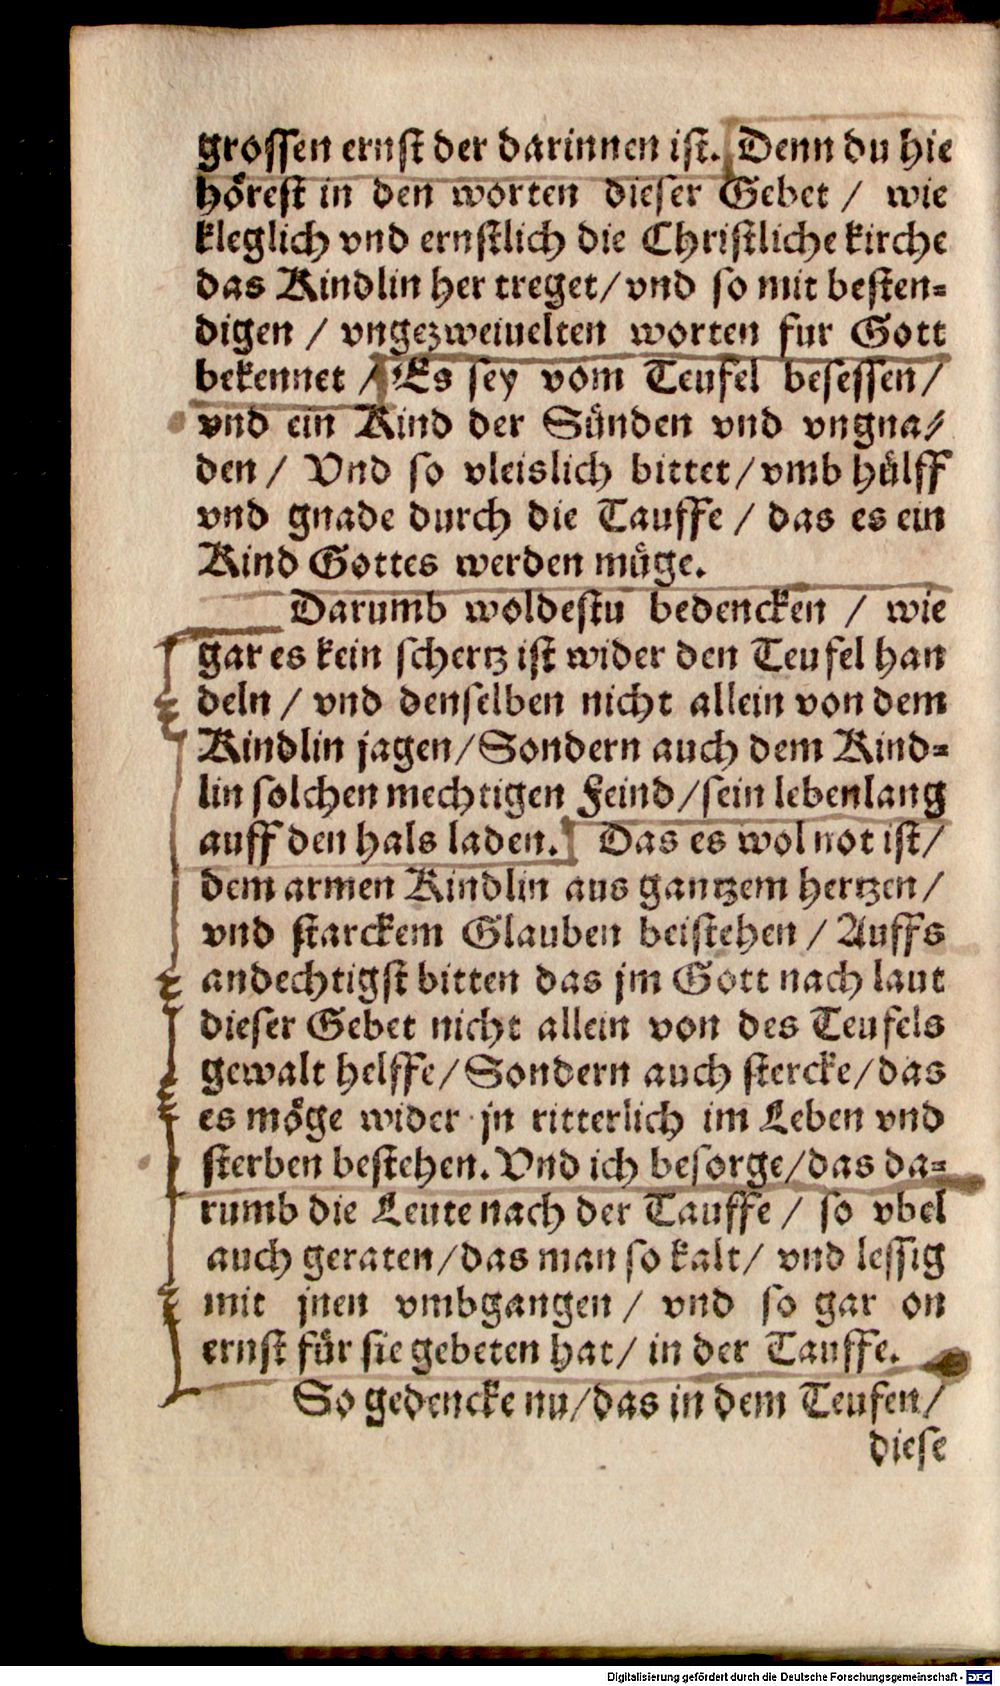 grossen ernst der darinnen ist. Denn du hie
hörest in den worten dieser Gebet / wie
kleglich vnd ernstlich die Christliche kirche
das Kindlin her treget / vnd so mit besten-
digen / vngezweiuelten worten fur Gott
bekennet / Es sey vom Teufel besessen /
vnd ein Kind der Sünden vnd vngna-
den / Vnd so vleislich bittet / vmb hülff
vnd gnade durch die Tauffe / das es ein
Kind Gottes werden müge.
Darumb woldestu bedencken / wie
gar es kein schertz ist wider den Teufel han
deln / vnd denselben nicht allein von dem
Kindlin jagen / Sondern auch dem Kind-
lin solchen mechtigen Feind / sein lebenlang
auff den hals laden. Das es wol not ist /
dem armen Kindlin aus gantzem hertzen /
vnd starckem Glauben beistehen / Auffs
andechtigst bitten das jm Gott nach laut
dieser Gebet nicht allein von des Teufels
gewalt helffe / Sondern auch stercke / das
es möge wider jn ritterlich im Leben vnd
sterben bestehen. Vnd ich besorge / das da-
rumb die Leute nach der Tauffe / so vbel
auch geraten / das man so kalt / vnd lessig
mit jnen vmbgangen / vnd so gar on
ernst für sie gebeten hat / in der Tauffe.
So gedencke nu / das in dem Teufen /
diese
Digitalisierung gefördert durch die Deutsche Forschungsgemeinschaft - DFG